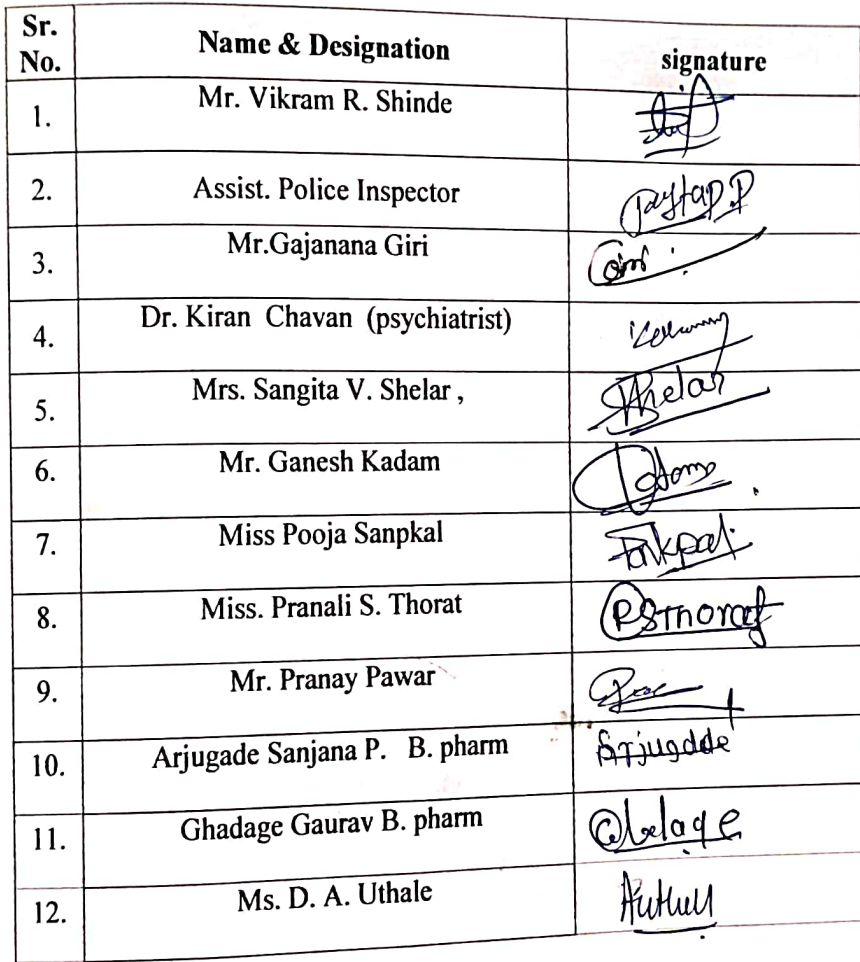 Sr. No. Name & Designation signature
1. Mr. Vikram R. Shinde
2. Assist. Police Inspector
3. Mr.Gajanana Giri
4. Dr. Kiran Chavan (psychiatrist)
5. Mrs. Sangita V. Shelar , Shelar
6. Mr. Ganesh Kadam
7. Miss Pooja Sanpkal
8. Miss. Pranali S. Thorat PSThorat
9. Mr. Pranay Pawar
10. Arjugade Sanjana P. B. pharm Arjugade
11. Ghadage Gaurav B. pharm
12. Ms. D. A. Uthale